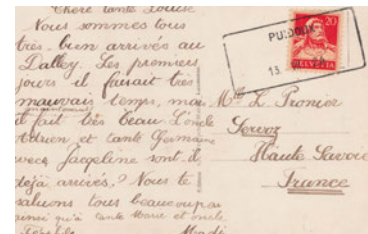 Chère tante Louise
Nous sommes tous
très bien arrivés au
Dalley. Les premiers
jours il faisait très
mauvais temps, mais
maintenant
il fait très beau. L'oncle
Adrien et tante Germaine
avec Jaqueline sont-ils
déjà arrivés? Nous te
saluons tous beaucoup
ainsi qu'à tante Marie et oncle
Madi
PUIDOUX
13.
20
HELVETIA
Mlle L. Pronier
Servoz
Haute Savoie
France